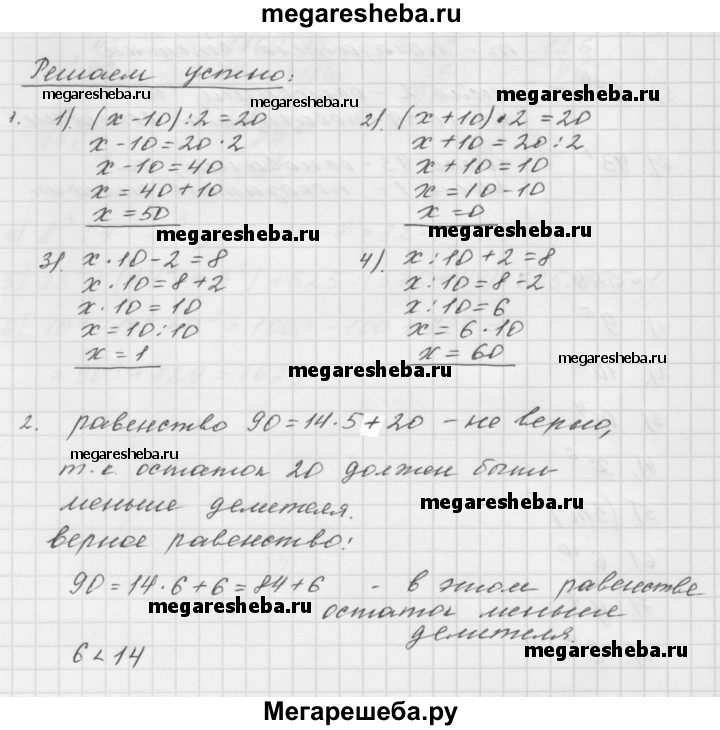 megaresheba.ru
Решаем устно:
megaresheba.ru megaresheba.ru
1. 1). (x-10):2=20 2). (x+10)·2=20
x-10=20·2 x+10=20:2
x-10=40 x+10=10
x=40+10 x=10-10
x=50 x=0
megaresheba.ru megaresheba.ru
3). x·10-2=8 4). x:10+2=8
x·10=8+2 x:10=8-2
x·10=10 x:10=6
x=10:10 x=6·10
x=1 x=60
megaresheba.ru megaresheba.ru
2. равенство 90=14·5+20 - не верно,
megaresheba.ru
т.к остаток 20 должен быть
меньше делителя.
megaresheba.ru
верное равенство:
90=14·6+6=84+6 - в этом равенстве
megaresheba.ru остаток меньше
делителя.
6<14
megaresheba.ru
Мегарешеба.ру